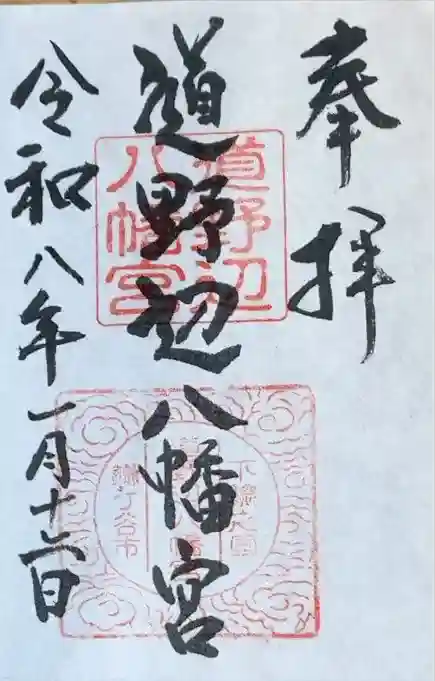 奉拝
道野辺八幡宮
令和八年一月十二日
道野辺
八幡宮
下総之国
鎌ケ谷市